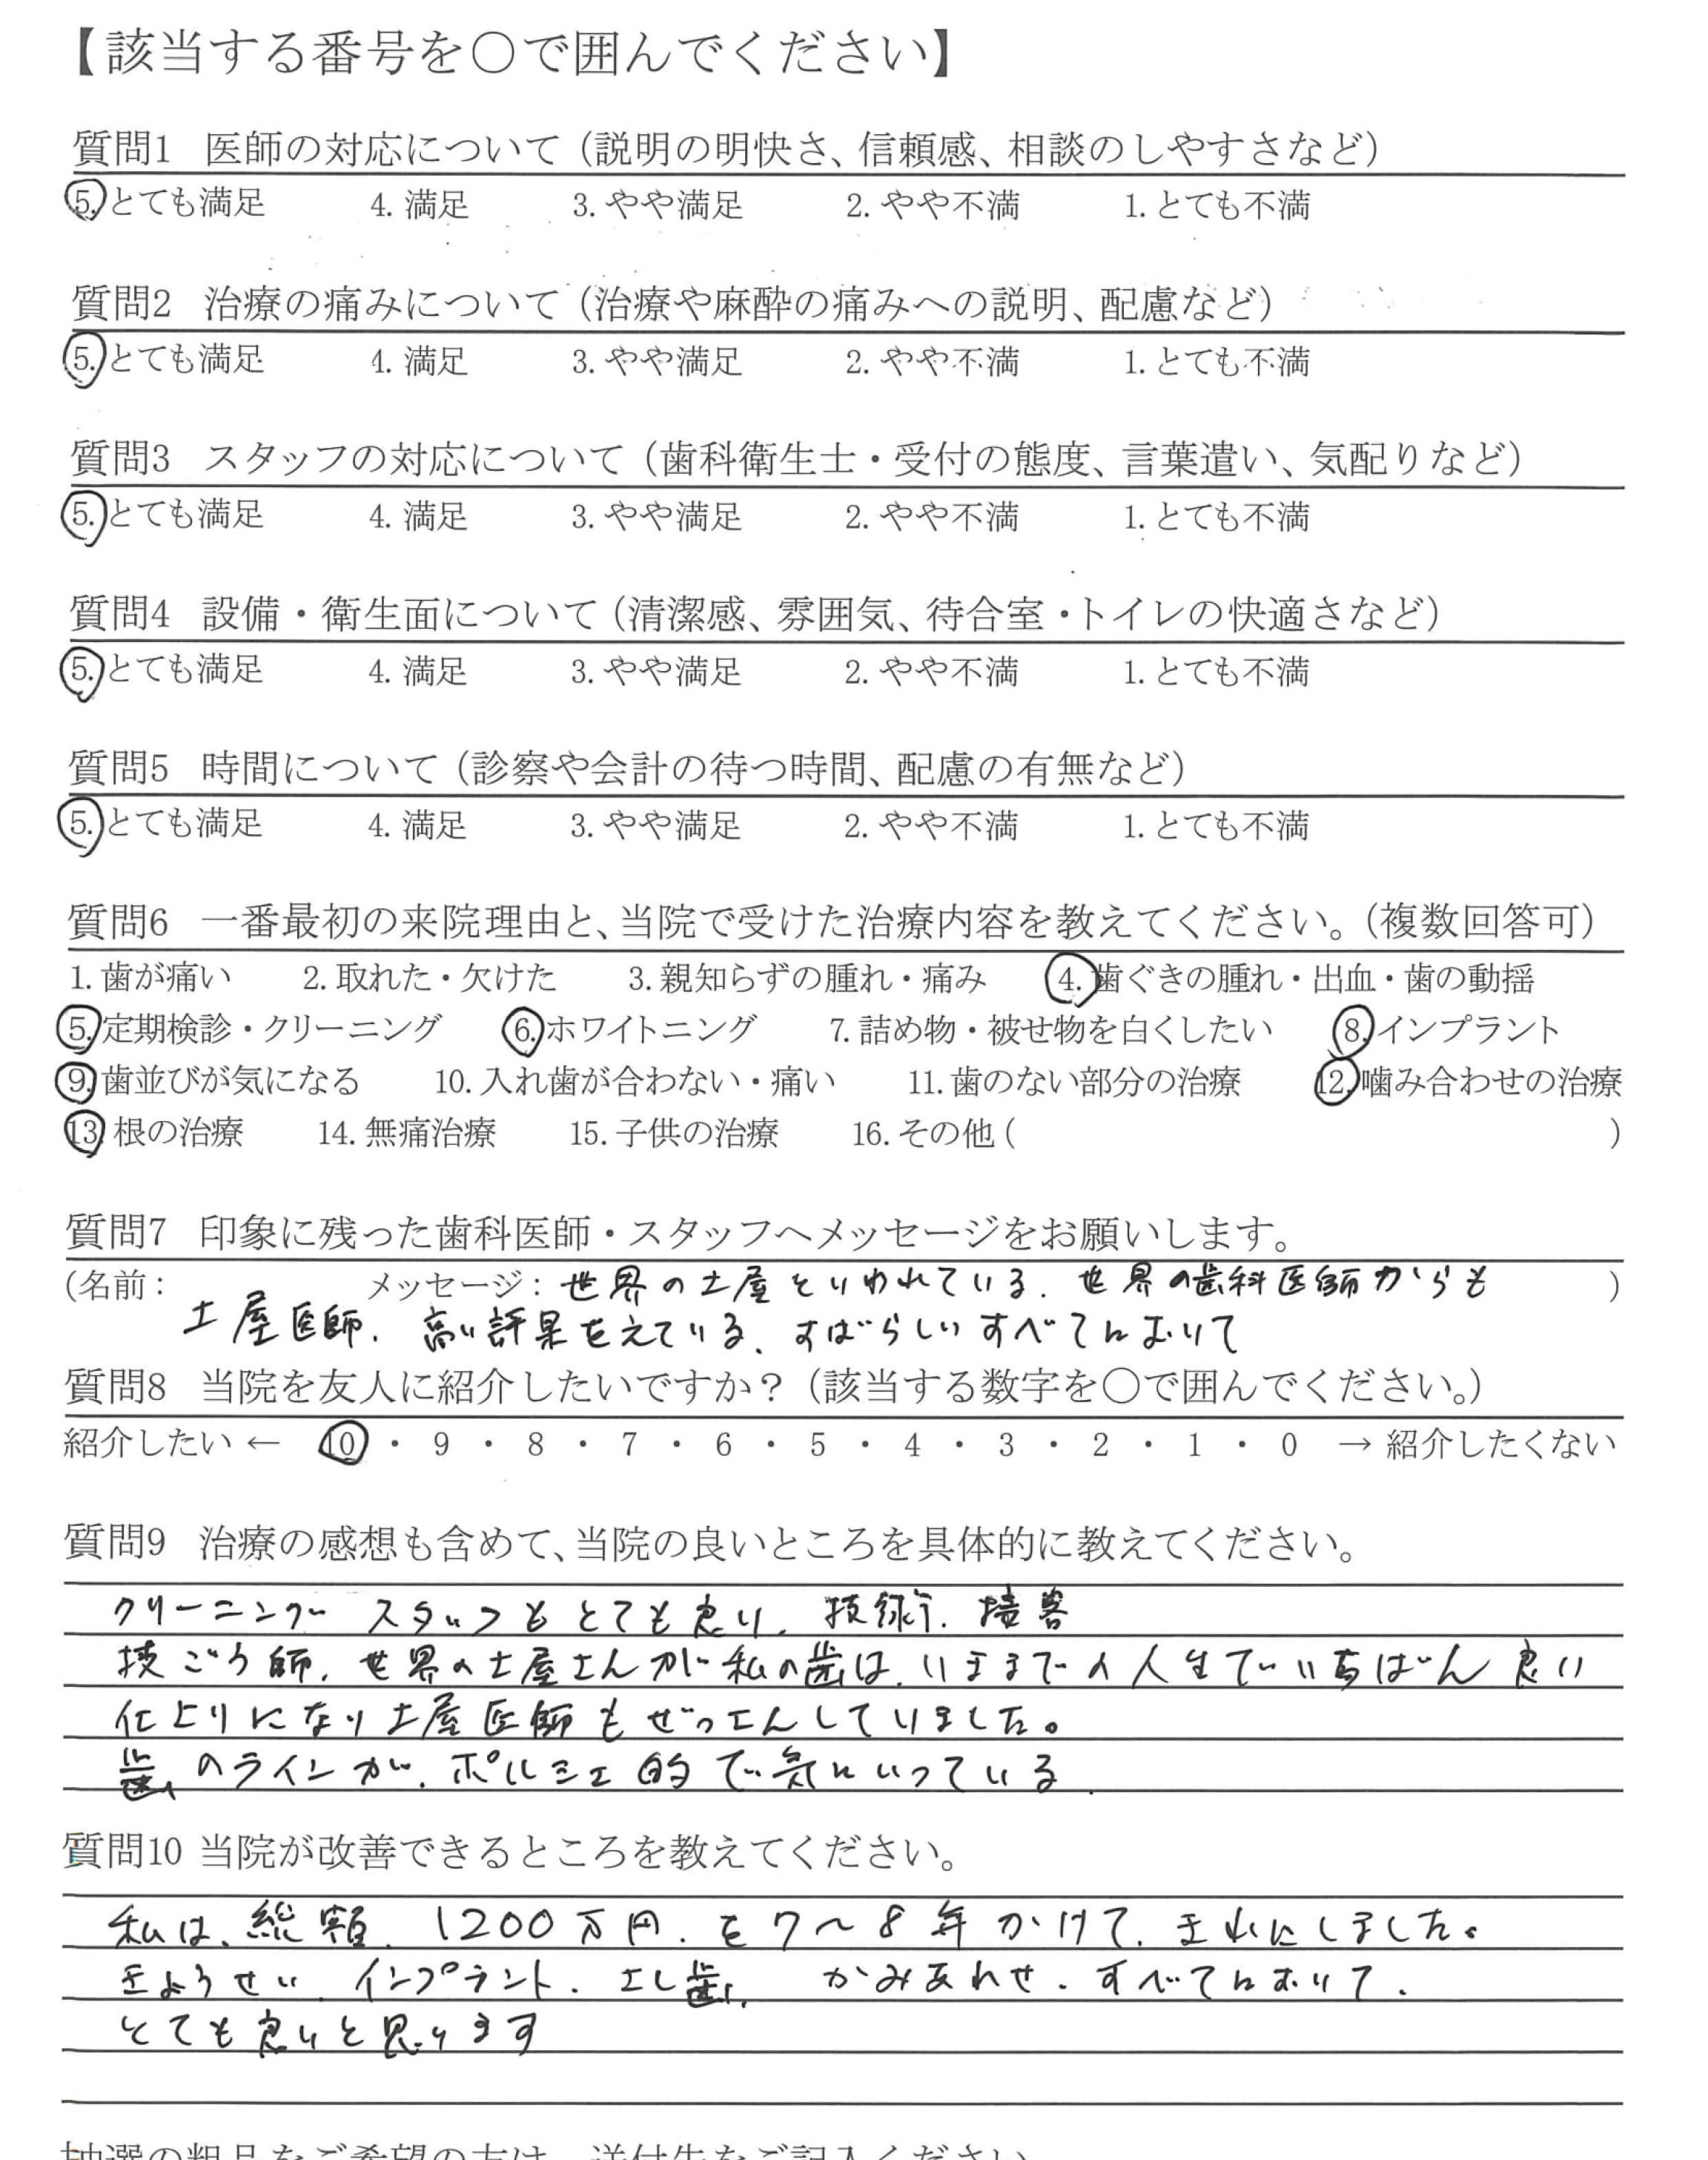 【該当する番号を〇で囲んでください】
質問1 医師の対応について（説明の明快さ、信頼感、相談のしやすさなど）
5. とても満足 4. 満足 3. やや満足 2. やや不満 1. とても不満
質問2 治療の痛みについて（治療や麻酔の痛みへの説明、配慮など）
5. とても満足 4. 満足 3. やや満足 2. やや不満 1. とても不満
質問3 スタッフの対応について（歯科衛生士・受付の態度、言葉遣い、気配りなど）
5. とても満足 4. 満足 3. やや満足 2. やや不満 1. とても不満
質問4 設備・衛生面について（清潔感、雰囲気、待合室・トイレの快適さなど）
5. とても満足 4. 満足 3. やや満足 2. やや不満 1. とても不満
質問5 時間について（診察や会計の待つ時間、配慮の有無など）
5. とても満足 4. 満足 3. やや満足 2. やや不満 1. とても不満
質問6 一番最初の来院理由と、当院で受けた治療内容を教えてください。（複数回答可）
1. 歯が痛い 2. 取れた・欠けた 3. 親知らずの腫れ・痛み 4. 歯ぐきの腫れ・出血・歯の動揺
5. 定期検診・クリーニング 6. ホワイトニング 7. 詰め物・被せ物を白くしたい 8. インプラント
9. 歯並びが気になる 10. 入れ歯が合わない・痛い 11. 歯のない部分の治療 12. 噛み合わせの治療
13. 根の治療 14. 無痛治療 15. 子供の治療 16. その他（ ）
質問7 印象に残った歯科医師・スタッフへメッセージをお願いします。
（名前： メッセージ：世界の土屋といわれている. 世界の歯科医師からも ）
土屋医師. 高い評果をえている、すばらしいすべてにおいて
質問8 当院を友人に紹介したいですか？（該当する数字を〇で囲んでください。）
紹介したい ← 10 ・ 9 ・ 8 ・ 7 ・ 6 ・ 5 ・ 4 ・ 3 ・ 2 ・ 1 ・ 0 → 紹介したくない
質問9 治療の感想も含めて、当院の良いところを具体的に教えてください。
クリーニング スタッフもとても良い. 技術. 接客
技ごう師. 世界の土屋さんが私の歯は、いままでの人生でいちばん良い
仕上りになり土屋医師もぜっさんしていました。
歯のラインが、ポルシェ的で気にいっている.
質問10 当院が改善できるところを教えてください。
私は、総額. 1200万円. を7〜8年かけて. きれいにしました。
きょうせい. インプラント. さし歯. かみあわせ. すべてにおいて.
とても良いと思います
抽選の粗品をご希望の方は、送付先をご記入ください